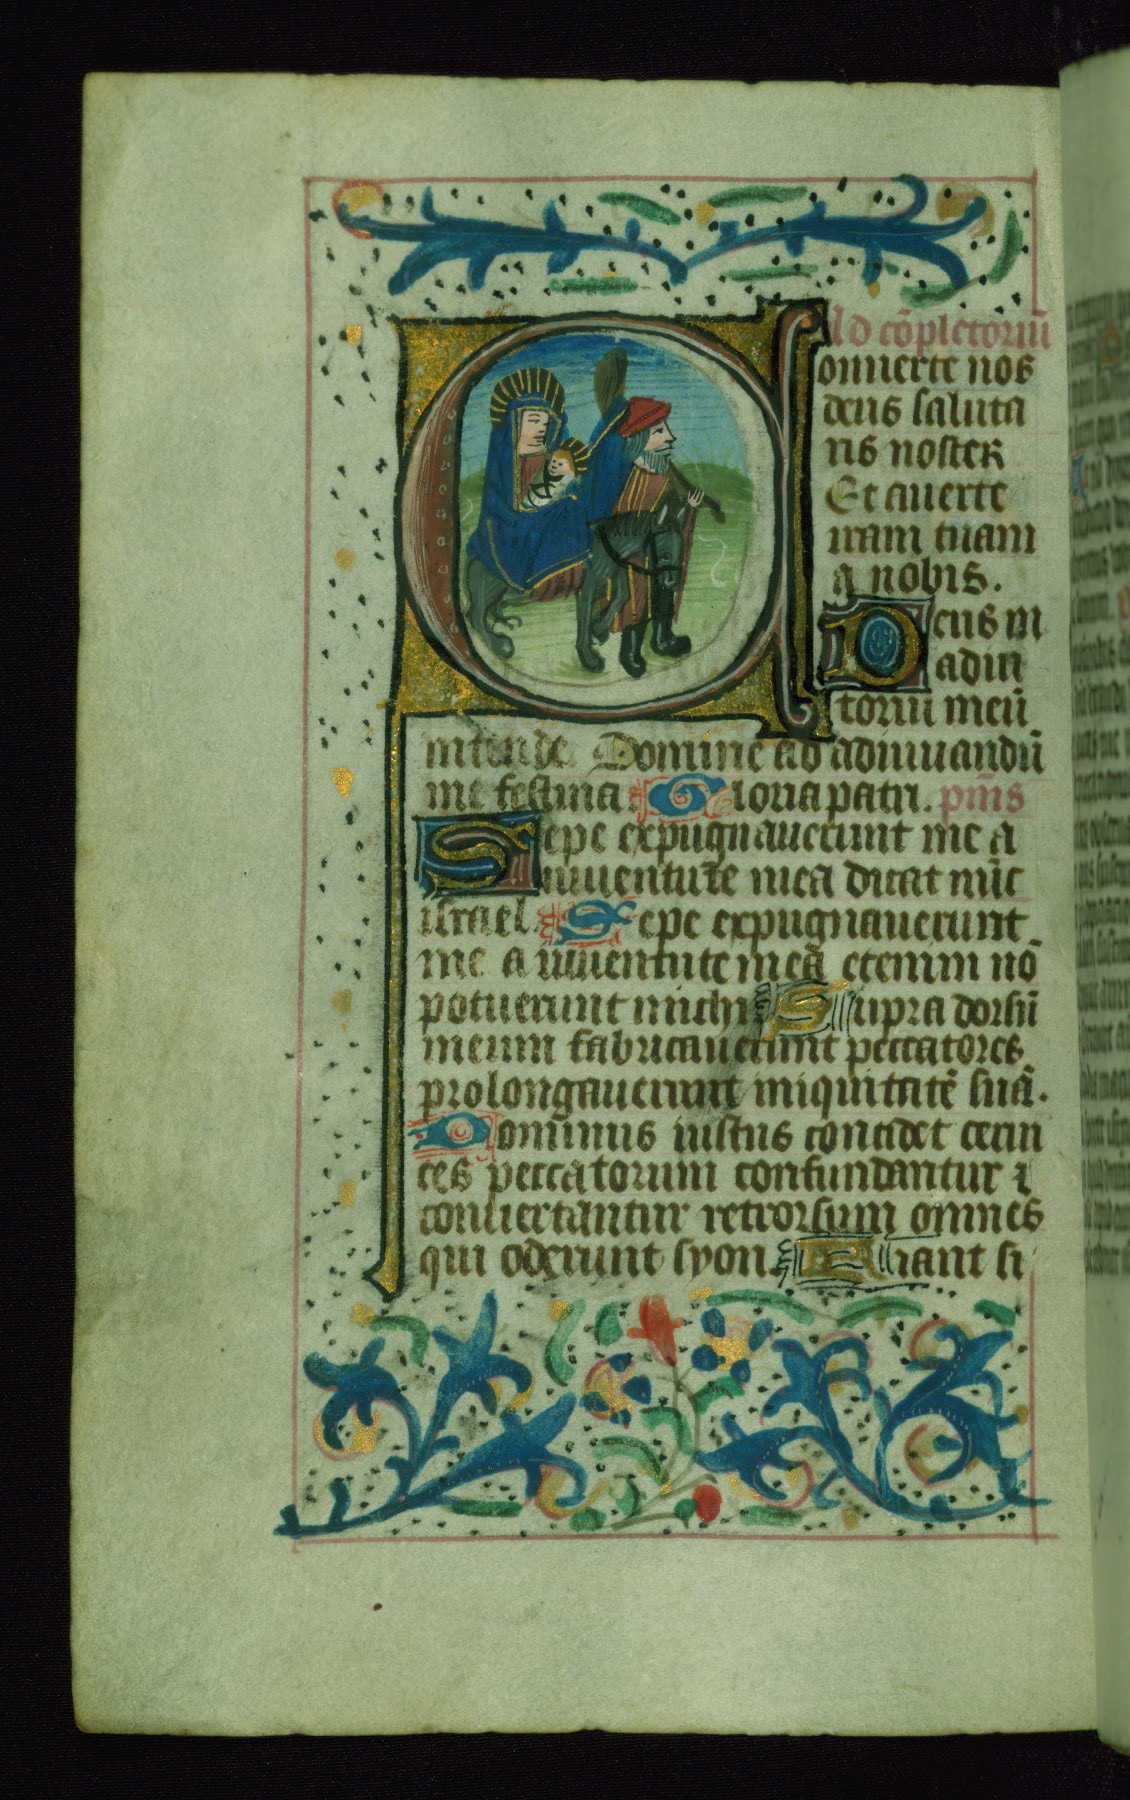 Ad cōpletoriū
Conuerte nos
deus saluta
ris noster
Et auerte
iram tuam
a nobis.
Deus in
adiu
toriū meū
intende Domine ad adiuuandū
me festina Gloria patri. p̄us
Sepe expugnauerunt me a
iuuentute mea dicat nūc
israel. Sepe expugnauerunt
me a iuuentute mea etenim nō
potuerunt michi Supra dorsū
meum fabricauerunt peccatores
prolongauerunt iniquitatē suā.
Dominus iustus concidet ceruí
ces peccatorum confundantur ⁊
conuertantur retrorsum omnes
qui oderunt syon. Fiant si